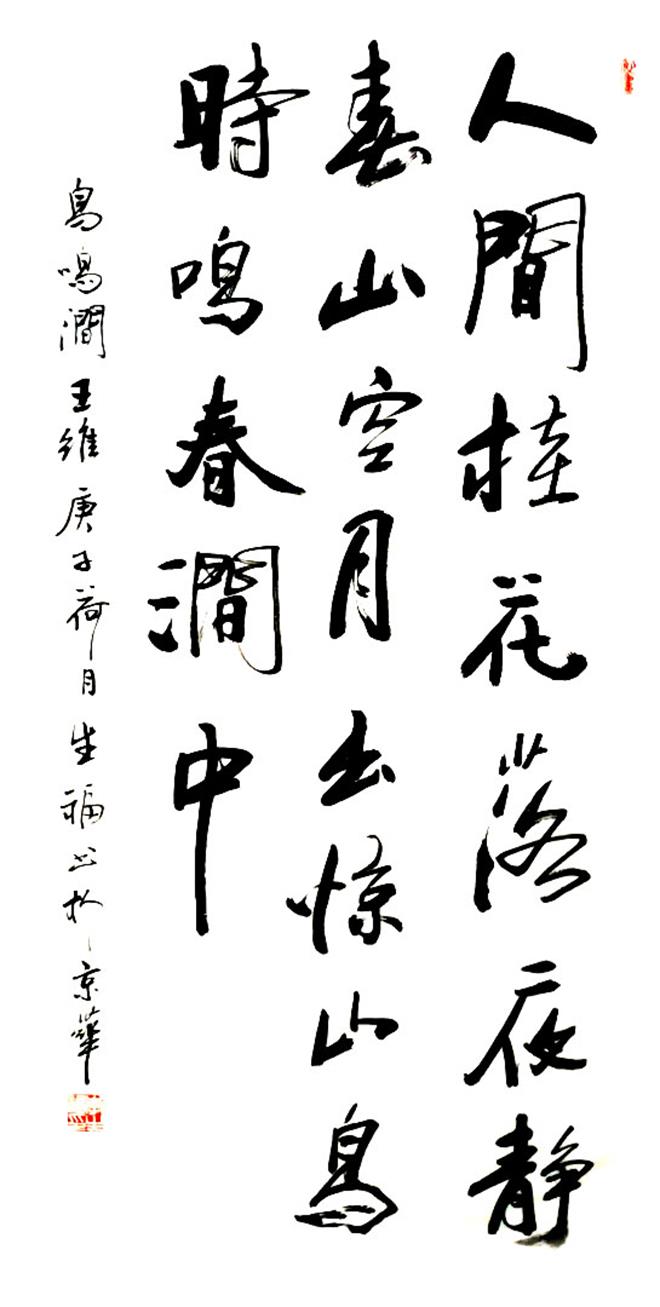 人間桂花落夜静
春山空月出惊山鳥
時鳴春澗中
鳥鳴澗 王維 庚子荷月 生福书於京華